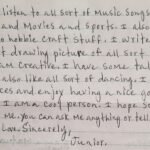 listen to all sort of Music Songs
and Movies and Sports. I also
hobbie Craft Stuff. I write
drawing picture of all Sort
am Creative. I have some tal
also like all sort of dancing. I
ces and enjoy having a nice g
I am a cool person. I hope s
me. You can ask me anything or tell
Love, Sincerely,
Junior.